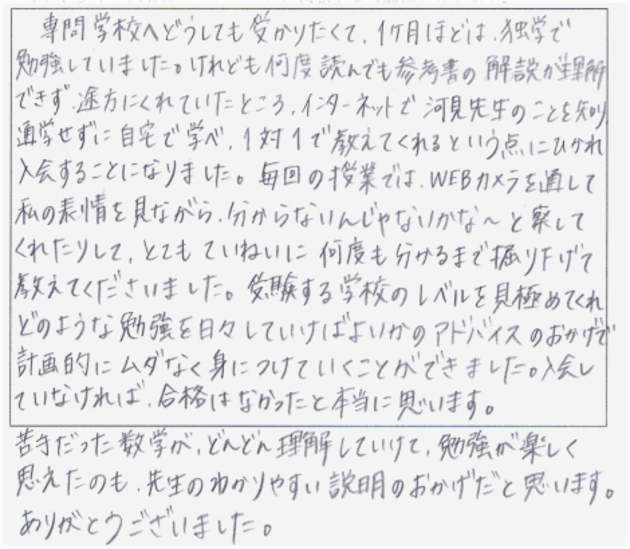 専門学校へどうしても受かりたくて、1ヶ月ほどは、独学で
勉強していました。けれども何度読んでも参考書の解説が理解
できず、途方にくれていたところ、インターネットで河見先生のことを知り、
通学せずに自宅で学べ、1対1で教えてくれるという点にひかれ
入会することになりました。毎回の授業では、WEBカメラを通して
私の表情を見ながら、分からないんじゃないかな〜と察して
くれたりして、とてもていねいに何度も分かるまで掘り下げて
教えてくださいました。受験する学校のレベルを見極めてくれ
どのような勉強を日々していけばよいかのアドバイスのおかげで
計画的にムダなく身につけていくことができました。入会し
ていなければ、合格はなかったと本当に思います。
苦手だった数学が、どんどん理解していけて、勉強が楽しく
思えたのも、先生のわかりやすい説明のおかげだと思います。
ありがとうございました。